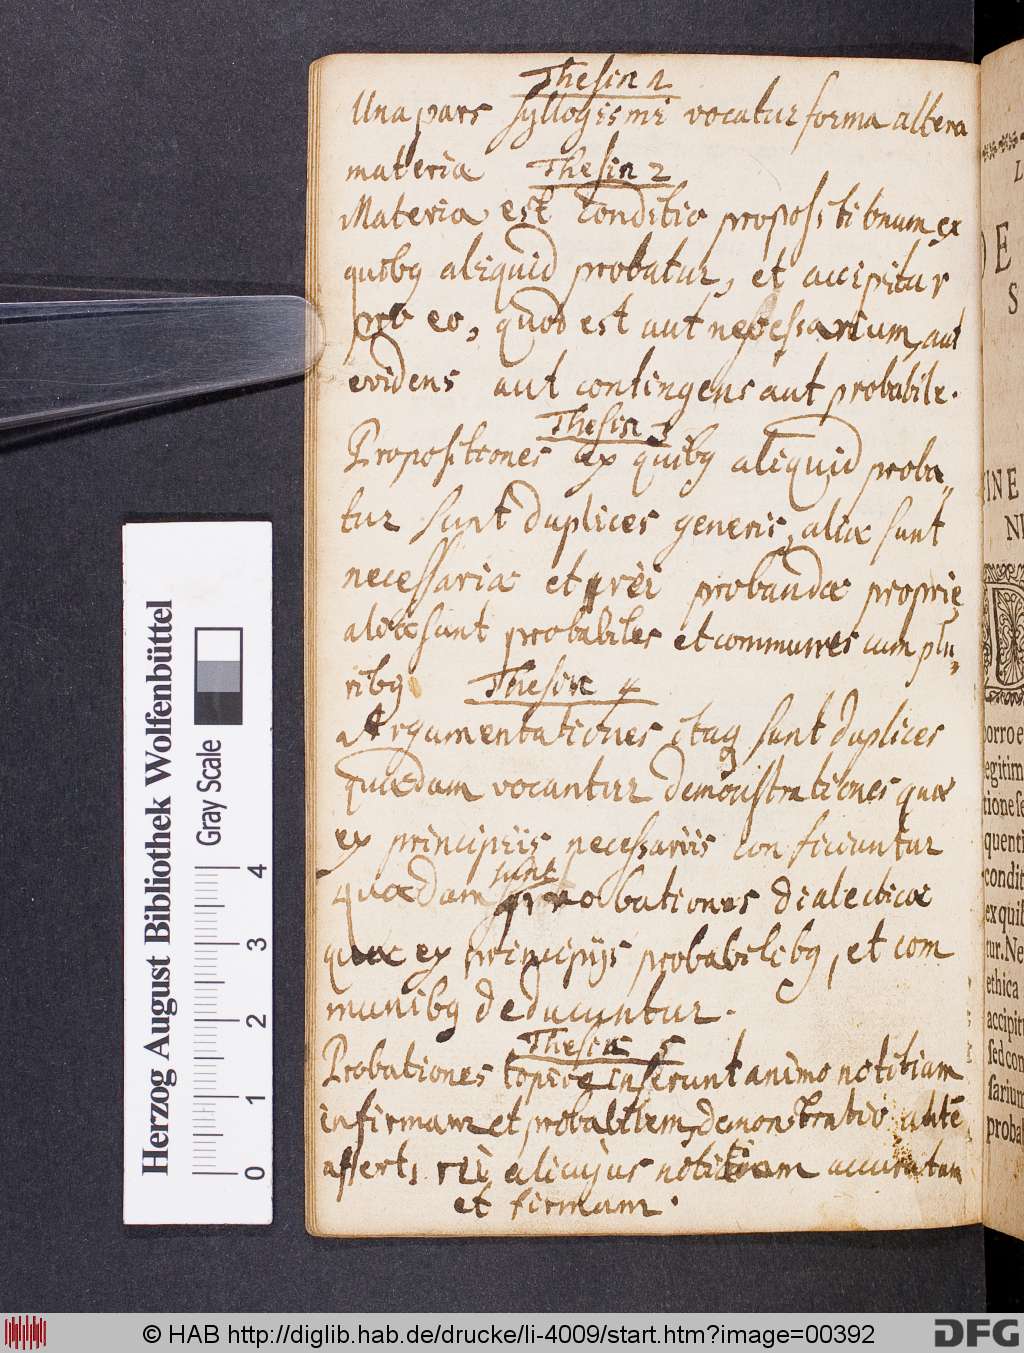 Thesin 1
Una pars syllogismi vocatur forma altera
materia Thesin 2
Materia est conditio propositionum ex
quibq aliquid probatur, et accipitur
pro eo, quod est aut necessarium, aut
evidens aut contingens aut probabile.
Thesin 3
Propositiones ex quibq aliquid proba„
tur sunt duplices generis, aliæ sunt
necessariæ et rei probandæ proprię
aliæ sunt probabiles et communes cum plu„
ribq Thesin 4
Argumentationes itaq sunt duplices
quædam vocantur demonstrationes quæ
ex principiis necessariis conficiuntur
quædam sunt probationes dialecticæ
quæ ex principijs probabilibq, et com
munibq deducuntur.
Thesin 5
Probationes topicæ inserunt animo notitiam
infirmam et probabilem, demonstratio autē
affert, rei alicujus notitiam accuratam
et firmam.
Herzog August Bibliothek Wolfenbüttel
Gray Scale
0 1 2 3 4
L
DE
S
INE
NI
porro e
legitim
tione se
quenti
condit
ex quib
tur. Ne
ethica
accipit
sed con
sarium
proba
© HAB http://diglib.hab.de/drucke/li-4009/start.htm?image=00392
DFG